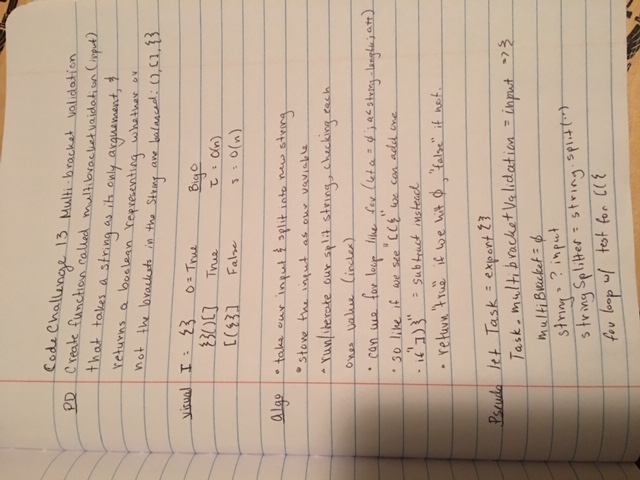 Code Challenge 13 Multi-bracket validation
PD Create function called multibracketvaidation (input)
that takes a string as its only arguement, &
returns a boolean representing whether or
not the brackets in the String are balanced: (), [], {}
Visual I = {} O = True Big O
{}()[] True T = O(n)
[({}] False S = O(n)
Algo • take our input & split into new string
• store the input as our variable
• run/iterate our split string, checking each
ones value (index)
• can use for loop like for (let a = 0; a<string-length; a++)
• so like if we see "[({" we can add one
• if "])}" = subtract instead
• return "true" if we hit 0, "false" if not.
Pseudo let Task = export {}
Task.multibracketValidation = input => {
multiBracket = 0
string = ? input
stringSplitter = string.split('')
for loop w/ test for [({